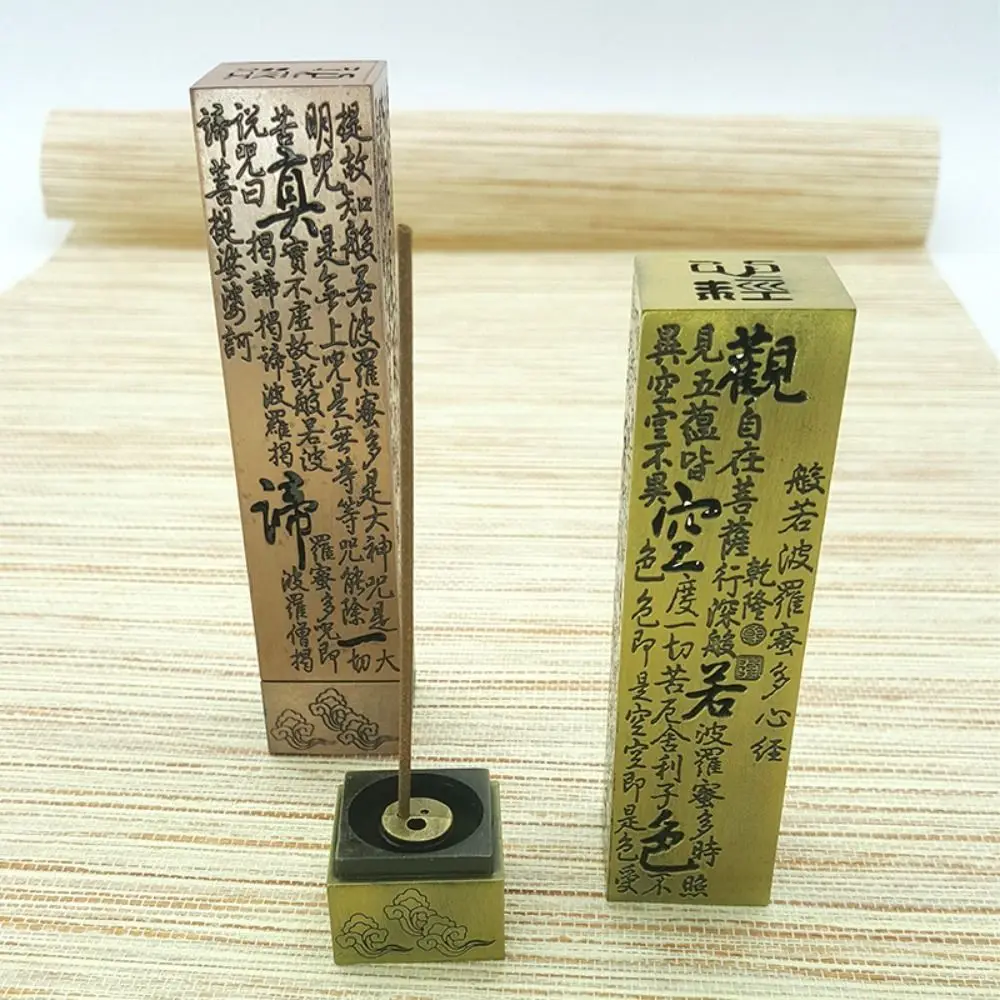 提故知般若波羅蜜多是大神咒是大
明咒是無上咒是無等等咒能除一切
苦真實不虛故説般若波羅蜜多咒即
说咒曰揭諦揭諦波羅揭諦波羅僧揭
諦菩提娑婆訶
心經
般若波羅蜜多心经
乾隆
觀自在菩薩行深般若波羅蜜多時照
見五蘊皆空度一切苦厄舍利子色不
異空空不異色色即是空空即是色受